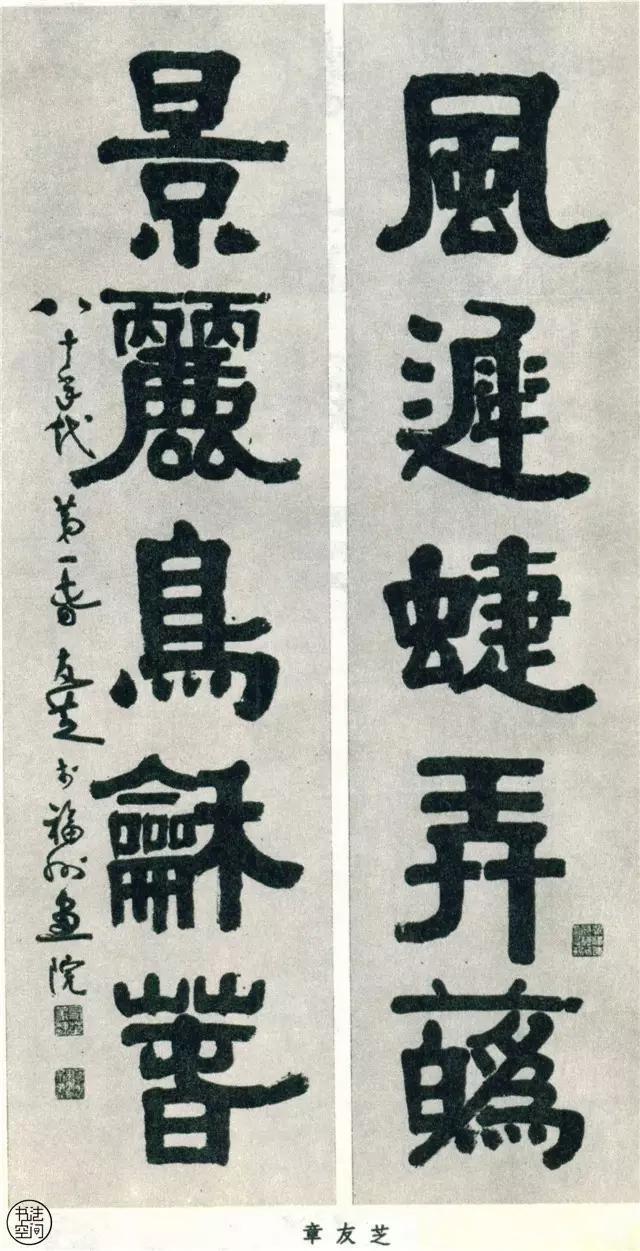 風遲蜨弄蘤
景麗鳥龢萅
八十年代第一春友芝书福州畫院
章友芝
书法
空间